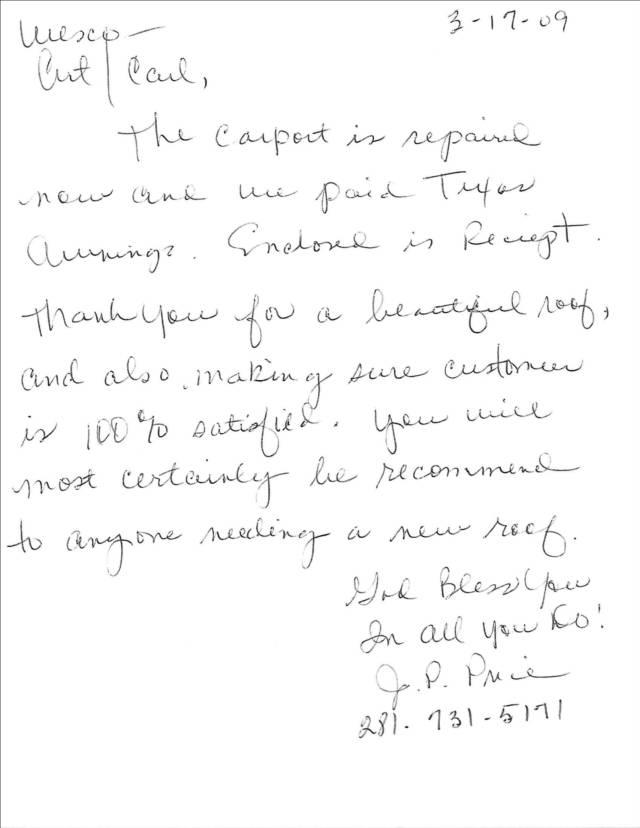 3-17-09
Wesco -
Art/Carl,
The Carport is repaired
now and we paid Texas
Awnings. Enclosed is Reciept.
Thank You for a beautiful roof,
and also, making sure customer
is 100% satisfied. You will
most certainly be recommend
to anyone needing a new roof.
God Bless You
In all you Do!
J. P. Price
281-731-5171